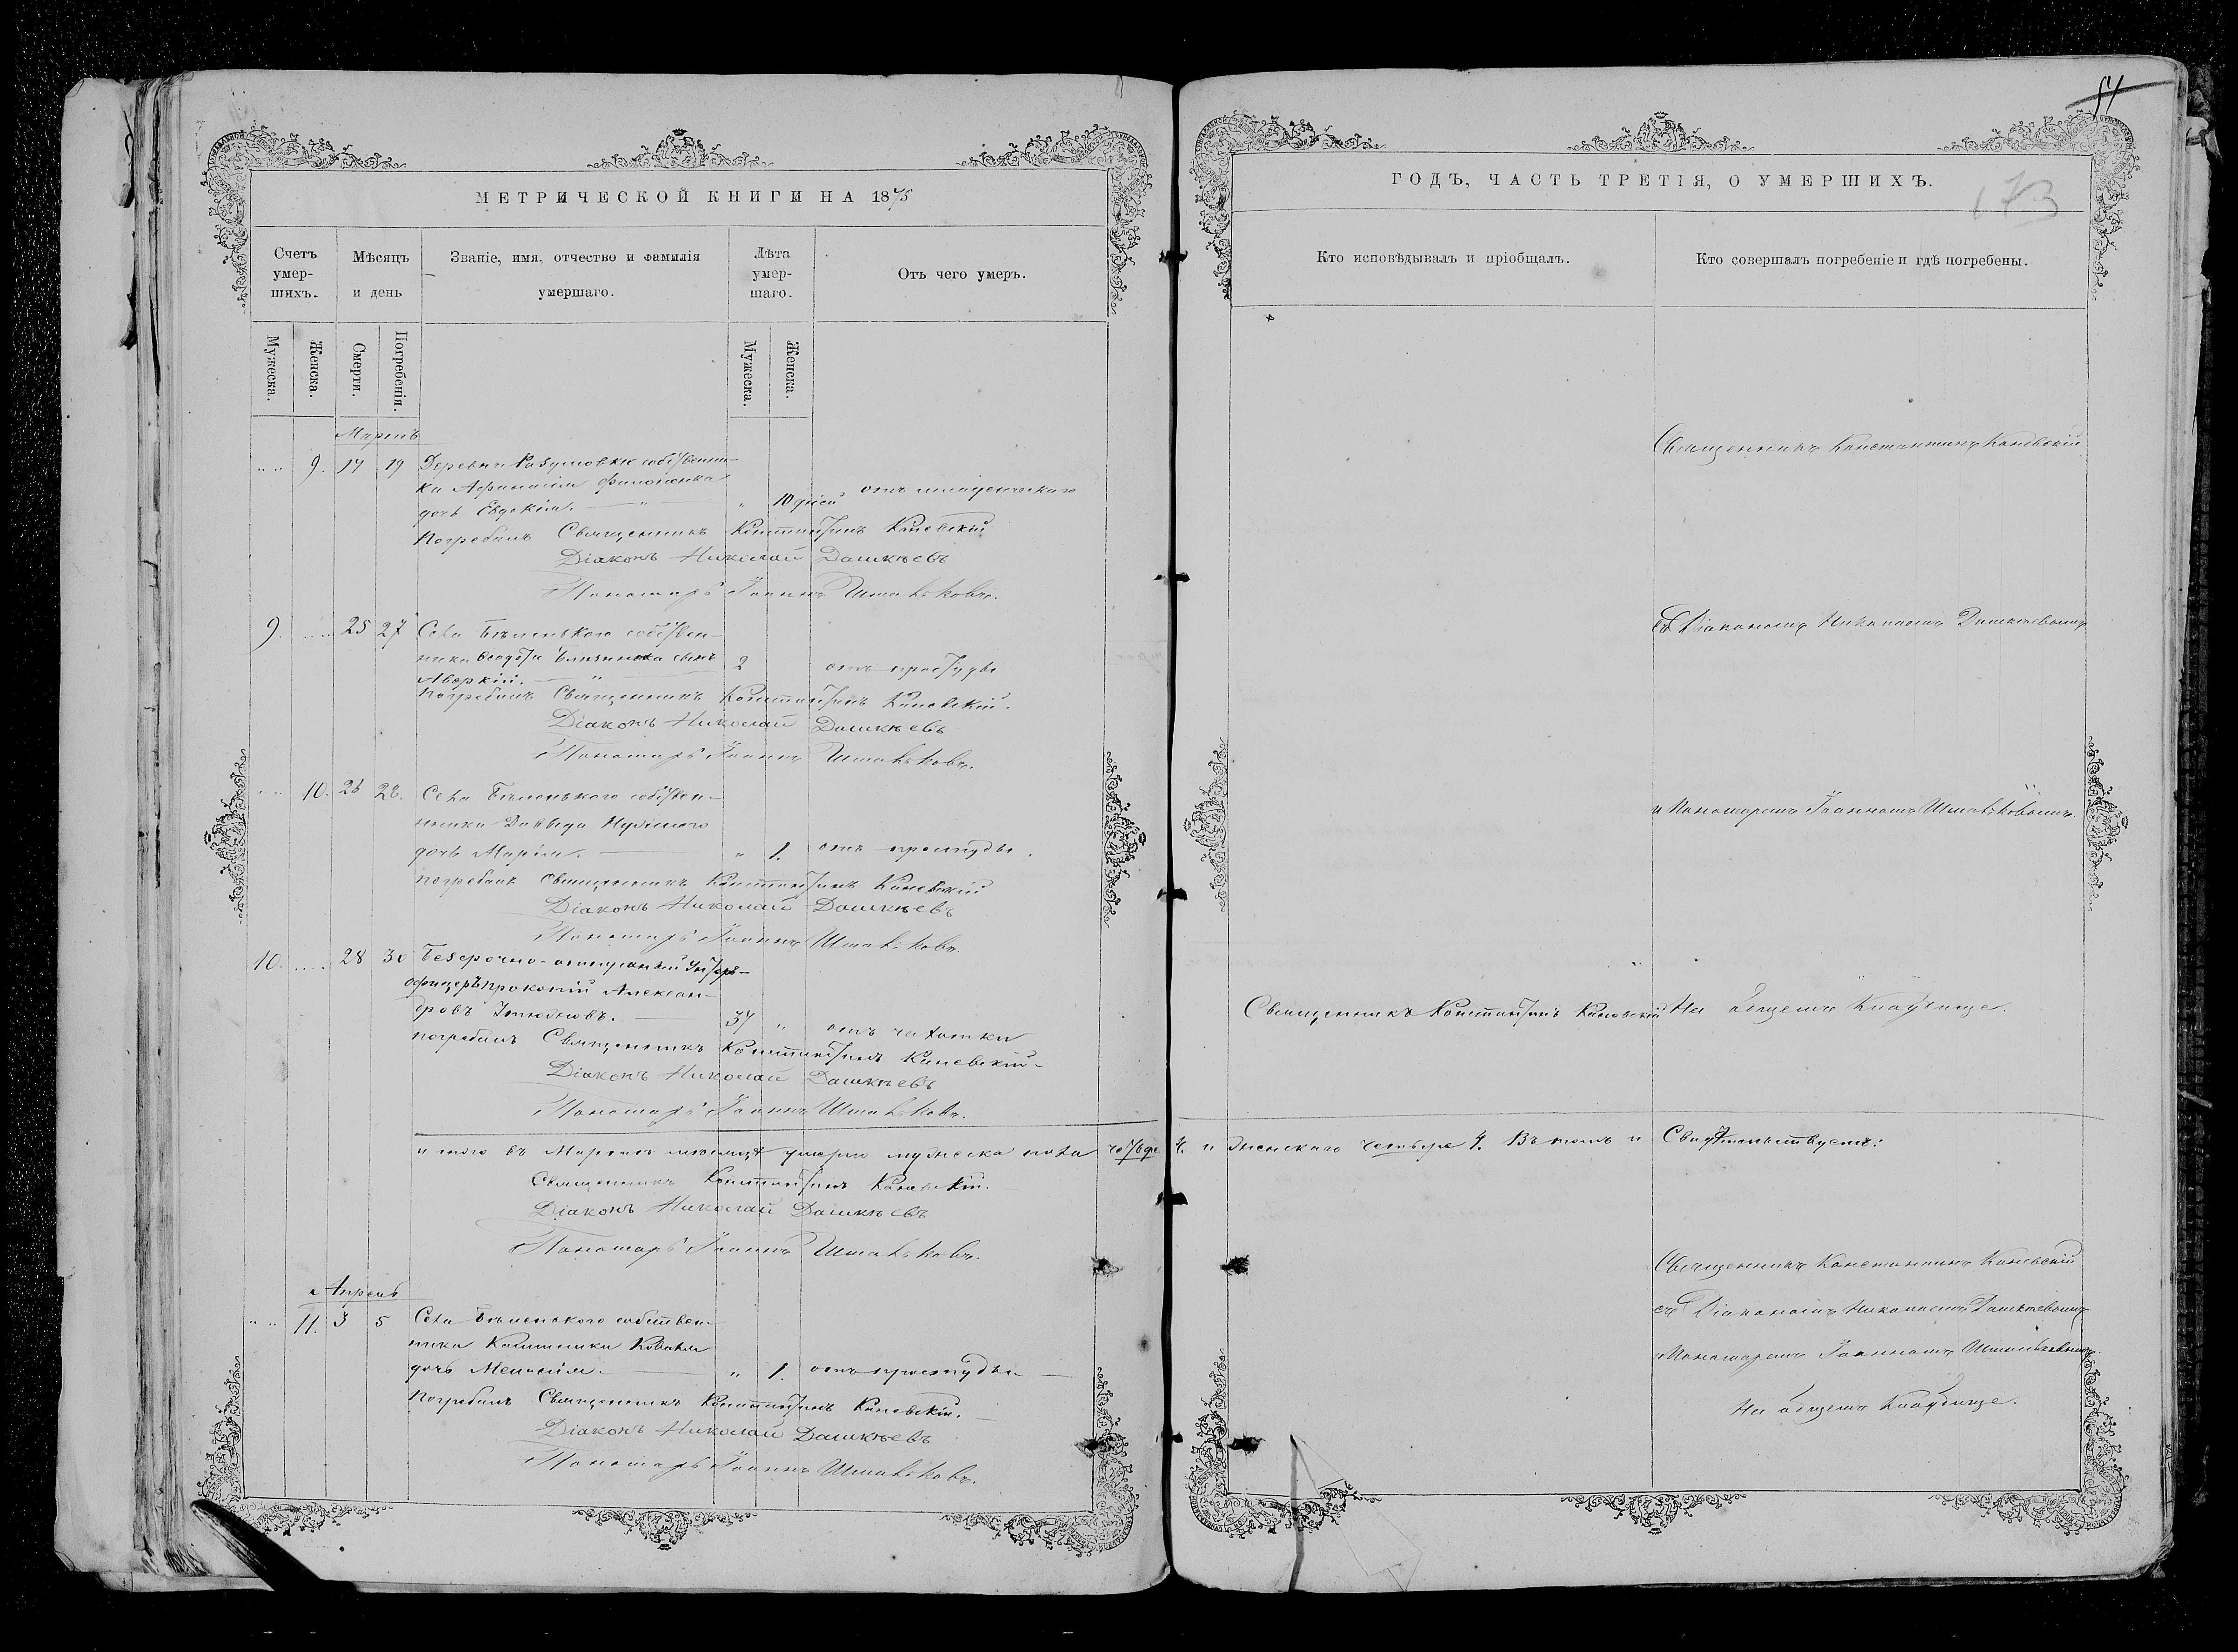 МЕТРИЧЕСКОЙ КНИГИ НА 1875
Счетъ умер-шихъ.
Мѣсяцъ и день
Званіе, имя, отчество и фамилія умершаго.
Лѣта умер-шаго.
Отъ чего умеръ.
Мужеска.
Женска.
Смерти.
Погребенія.
Мужеска.
Женска.
Мартъ
9. 17 19 Деревни Разумовки собствени-
ка Афанасія Филоненка
дочь Евдокія. " 10 дней отъ младенческаго
Погребалъ Священникъ Константинъ Каневскій
Діаконъ Николай Дашкѣевъ
Пономарь Іоаннъ
9. 25 27 Села Бѣленькаго собствен-
ника Ѳеодота сынъ
Аверкій. " 2 отъ простуды
Погребалъ Священникъ Константинъ Каневскій.
Діаконъ Николай Дашкѣевъ
Пономарь Іоаннъ
10. 26 28. Села Бѣленькаго собствен-
ника Давида
дочь Марія. " 1. отъ простуды.
Погребалъ Священникъ Константинъ Каневскій
Діаконъ Николай Дашкѣевъ
Пономарь Іоаннъ
10. 28 30 Безсрочно-отпускной Унтеръ-
офицеръ Прокопій Алексан-
дровъ 37 " отъ чахотки
Погребалъ Священникъ Константинъ Каневскій
Діаконъ Николай Дашкѣевъ
Пономарь Іоаннъ
Итого въ Мартѣ мѣсяцѣ умерло мужеска пола
Священникъ Константинъ Каневскій.
Діаконъ Николай Дашкѣевъ
Пономарь Іоаннъ
Апрель
11. 3 5 Села Бѣленькаго собствен-
ника Коваля
дочь Меланія. " 1. отъ простуды
Погребалъ Священникъ Константинъ Каневскій.
Діаконъ Николай Дашкѣевъ
Пономарь Іоаннъ
ГОДЪ, ЧАСТЬ ТРЕТІЯ, О УМЕРШИХЪ.
173
Кто исповѣдывалъ и пріобщалъ.
Кто совершалъ погребеніе и гдѣ погребены.
Священникъ Константинъ Каневскій
съ Діакономъ Николаемъ Дашкѣевымъ
и Пономаремъ Іоанномъ
Священникъ Константинъ Каневскій На общемъ Кладбище.
4. и женскаго четыре 4. Въ томъ и Свидѣтельствуемъ:
Священникъ Константинъ Каневскій
съ Діакономъ Николаемъ Дашкѣевымъ
и Пономаремъ Іоанномъ
На общемъ Кладбище.